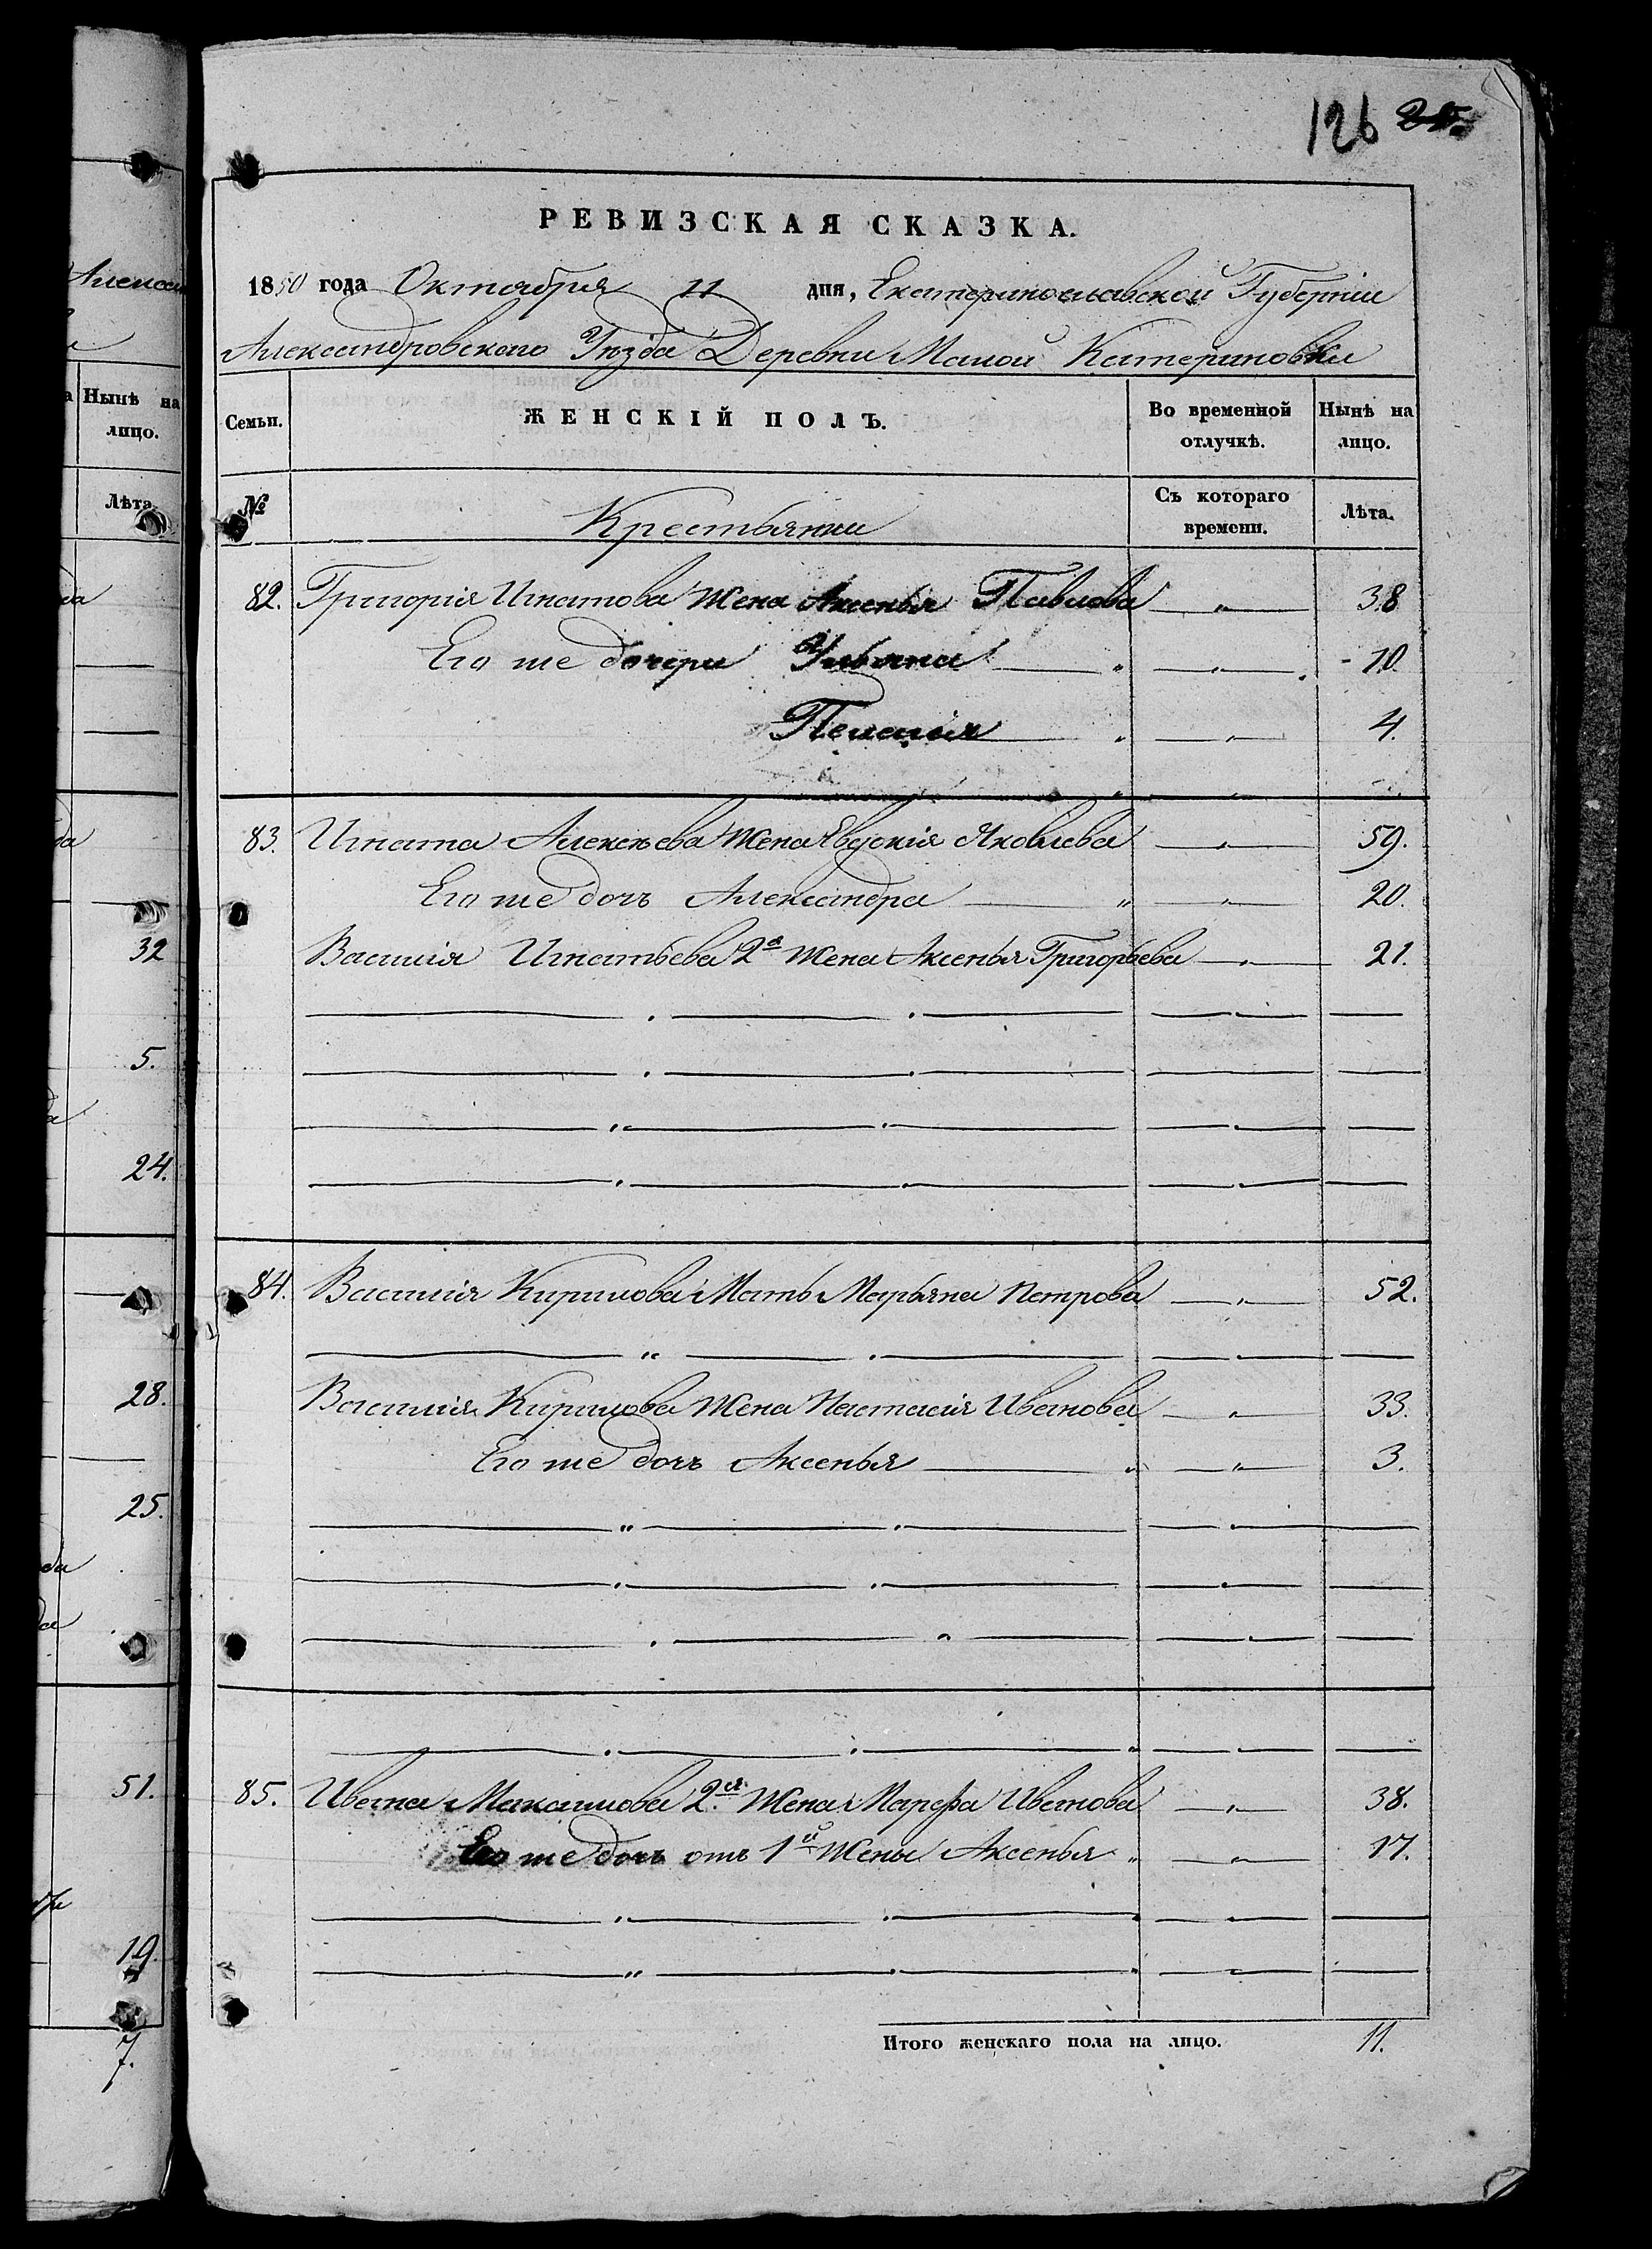 Алекса
Нынѣ на
лицо.
Лѣта.
да
да
32
5.
да
24.
28.
25.
да
да
51.
19.
7.
126 25.
РЕВИЗСКАЯ СКАЗКА.
1850 года Октября 11 дня, Екатеринославской Губерніи
Александровскаго Уѣзда Деревни Малой Катериновки
Семьи. ЖЕНСКІЙ ПОЛЪ. Во временной отлучкѣ. Нынѣ на лицо.
№ Крестьянки Съ котораго времени. Лѣта.
82. Григорія Игнатова жена Аксенья Павлова — „ — 38
Его же дочери Ульяна — „ — „ — 10.
Пелагія — „ — „ — 4.
83. Игната Алексѣева жена Евдокія Яковлева — „ — 59.
Его же дочь Александра — „ — „ — 20.
Василія Игнатьева 2я жена Аксенья Григорьева — „ — 21.
84. Василія Кирилова Мать Марьяна Петрова — „ — 52.
Василія Кирилова жена Настасія Иванова — „ — 33.
Его же дочь Аксенья — „ — „ — 3.
85. Ивана Максимова 2.я жена Марфа Иванова — „ — 38.
Его же дочь отъ 1й жены Аксенья „ — „ — 17.
Итого женскаго пола на лицо. 11.